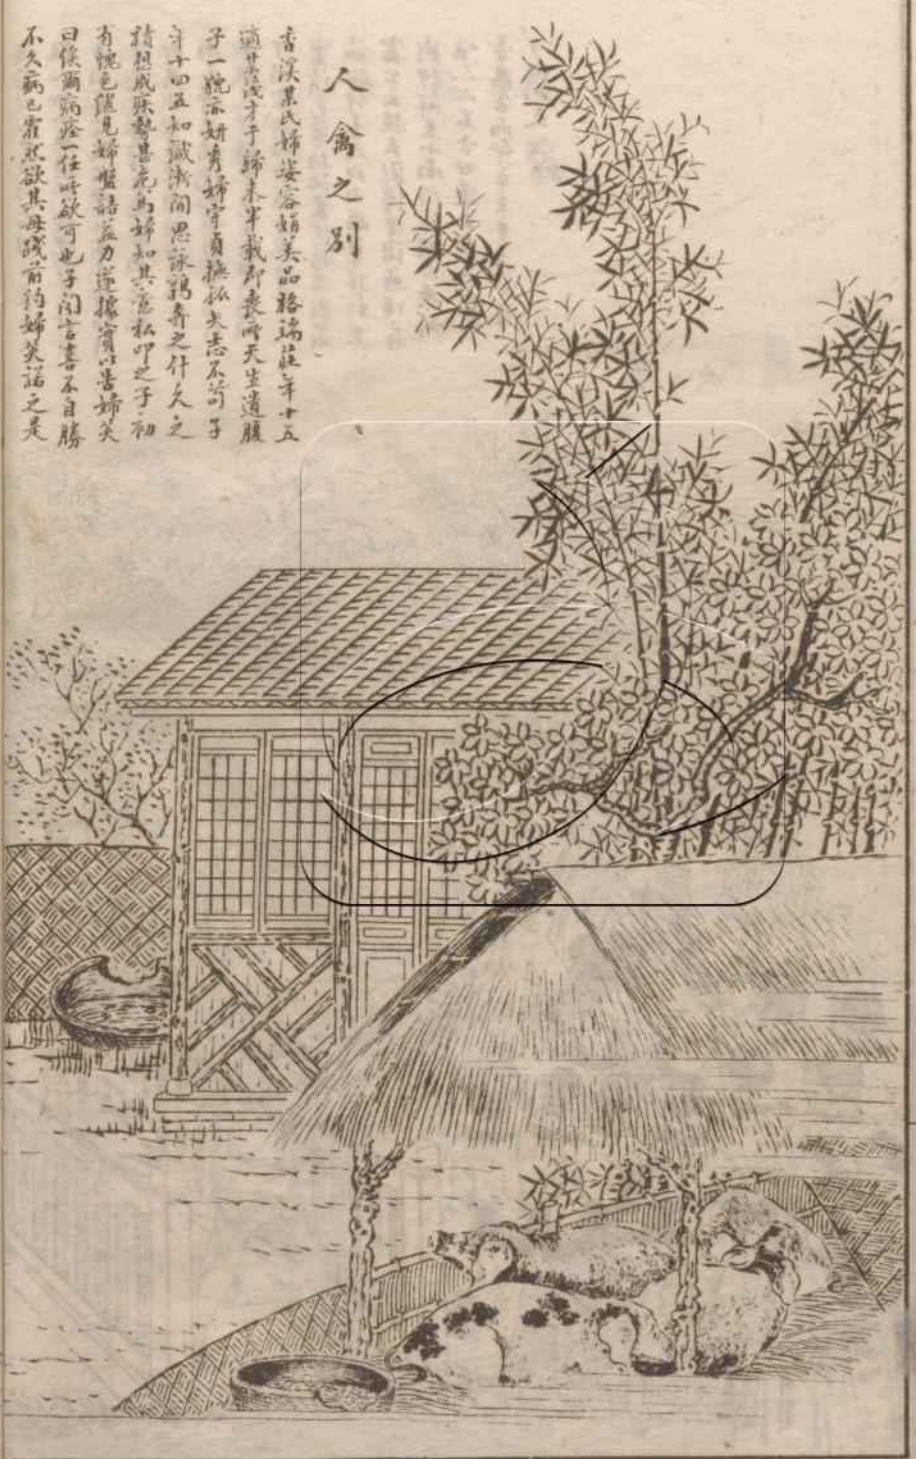 人禽之別
香溪某氏婦姿容娟美品格端莊年十五
適某茂才于歸未半載即喪所天生遺腹
子一貌亦妍秀婦守貞撫孤矢志不苟子
年十四五知識漸開思詠鶉奔之什久之
積想成疾勢甚危篤婦知其意私叩之子初
有愧色繼見婦盤詰益力遂據實以告婦笑
曰俟爾病痊一任所欲可也子聞言喜不自勝
不久病已霍然欲其母踐前約婦笑諾之是